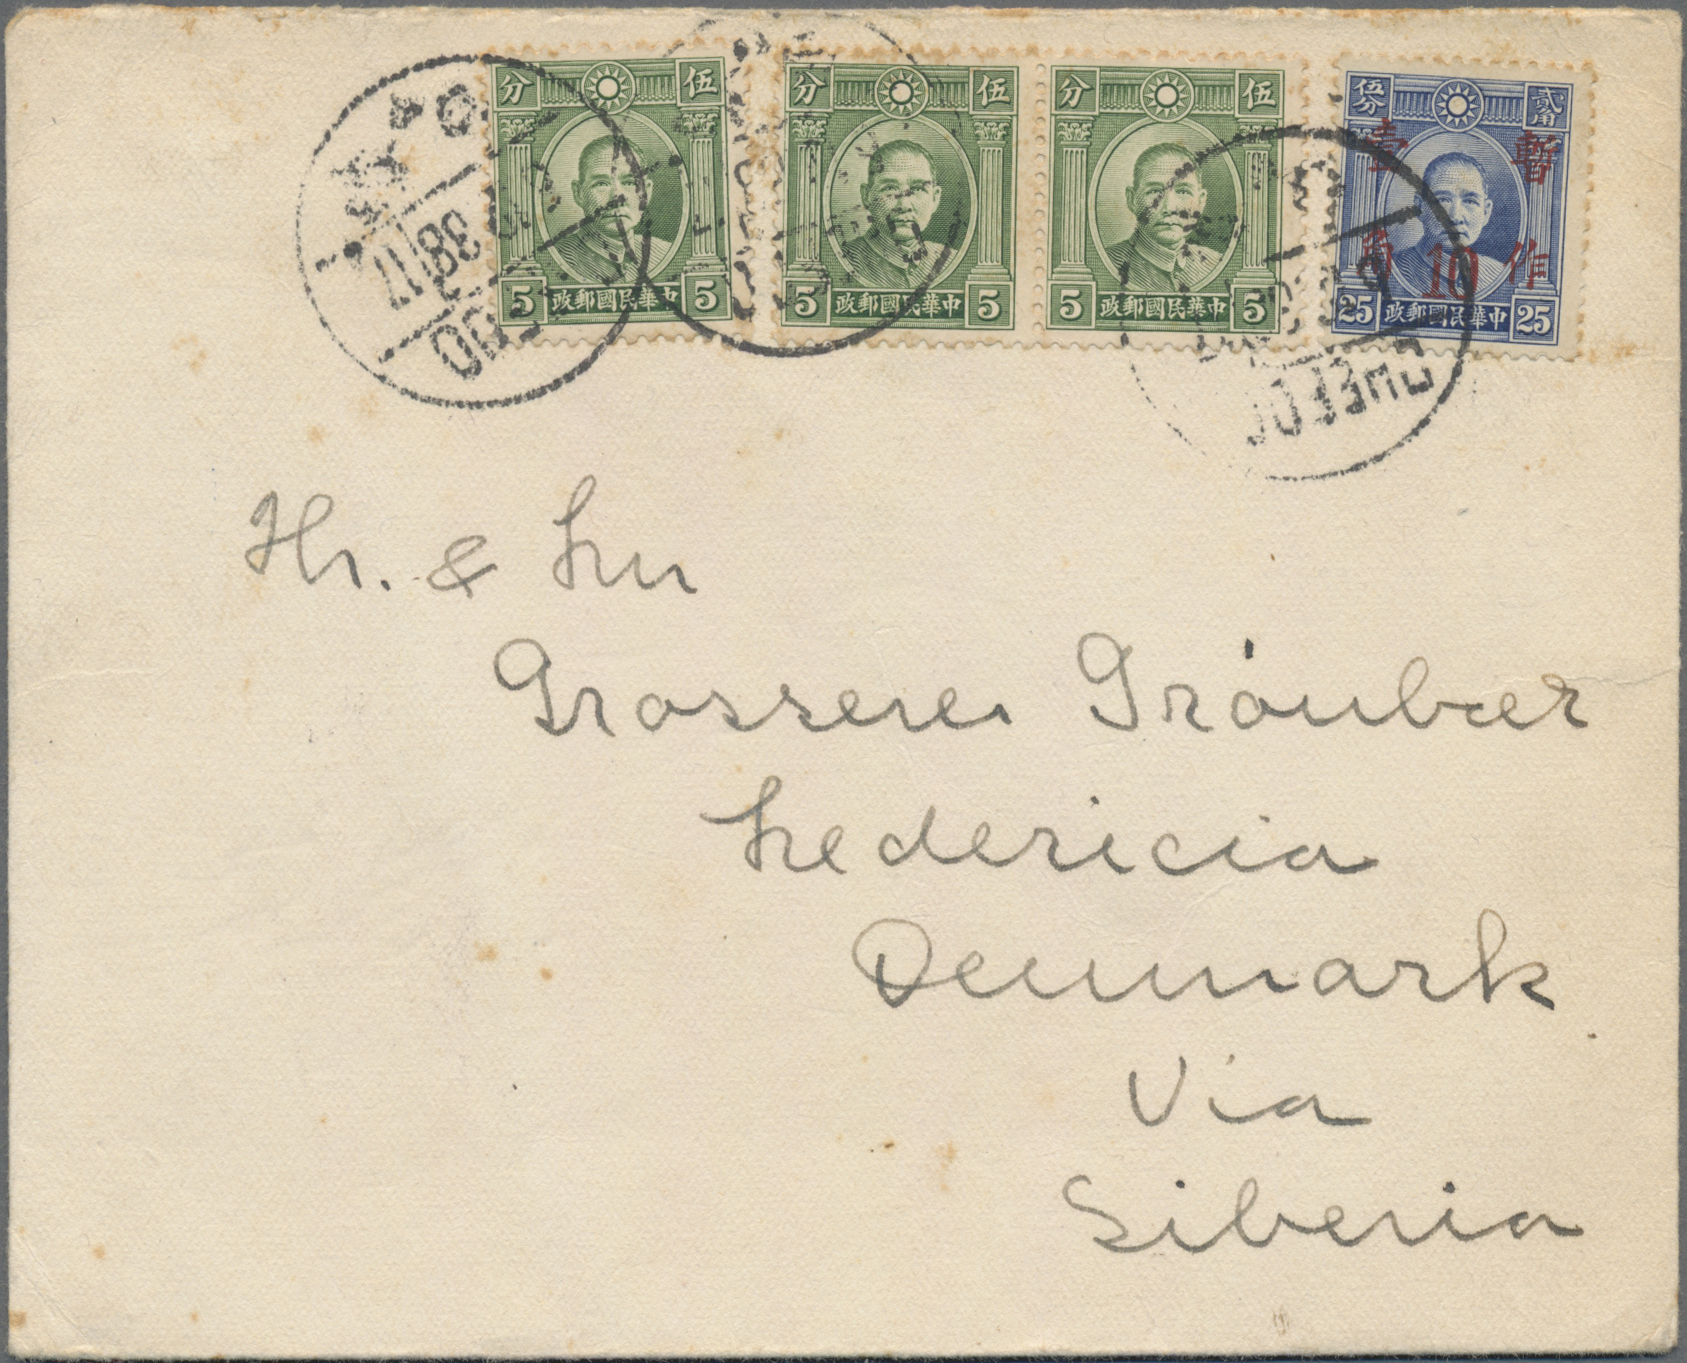 分 伍
5 政郵國民華中 5
分 伍
5 政郵國民華中 5
分 伍
5 政郵國民華中 5
伍分 貳角
壹 暫
角 10 作
25 政郵國民華中 25
CHEFOO
38 17
Hr. & Fru
Grosserer Gróubær
Fredericia
Denmark
Via
Siberia